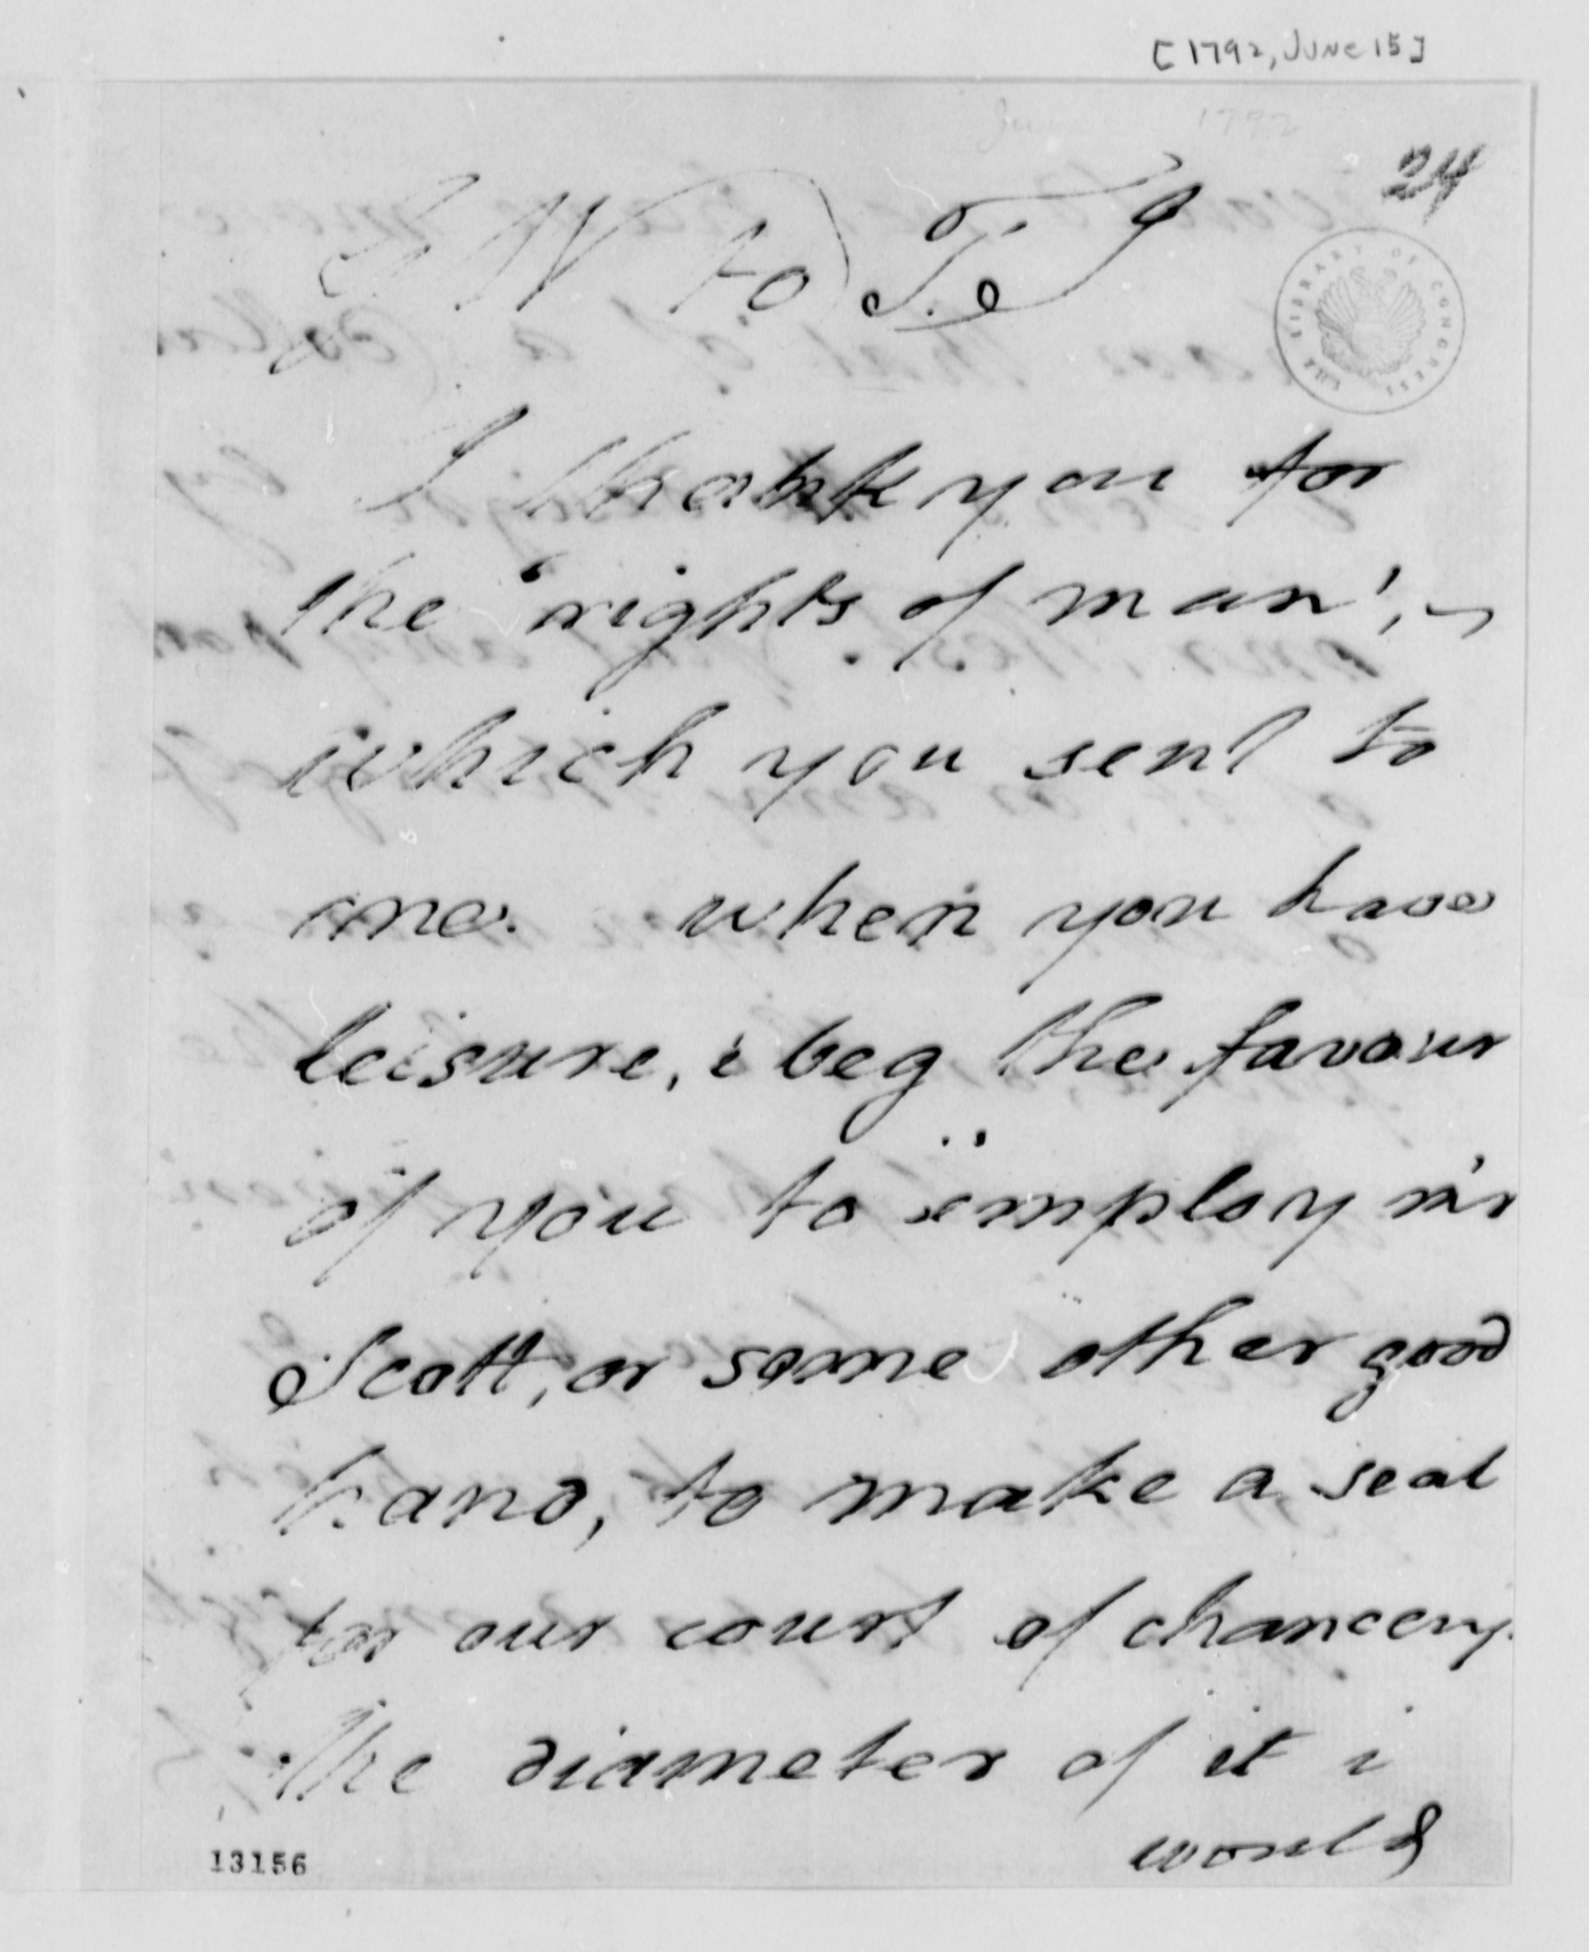 [1792, June 15]
1792
24
G W to T. J
THE LIBRARY OF CONGRESS
I thank you for
the 'rights of man',
which you sent to
me. when you have
leisure, i beg the favour
of you to employ m'r
Scott, or some other good
hand, to make a seal
for our court of chancery.
the diameter of it i
would
13156